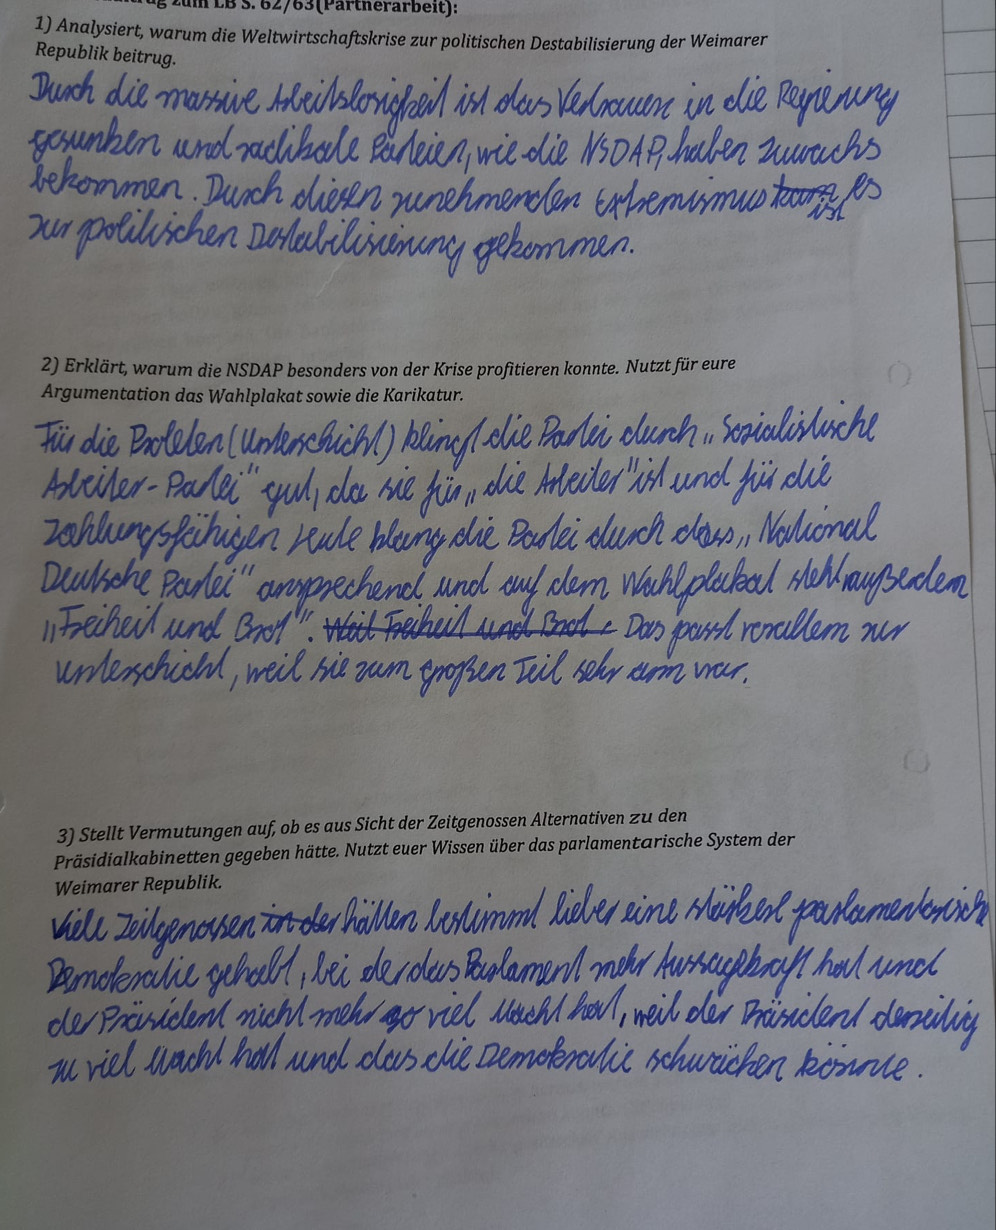 zum LB S. 62/63(Partnerarbeit):
1) Analysiert, warum die Weltwirtschaftskrise zur politischen Destabilisierung der Weimarer
Republik beitrug.
Durch die massive Arbeitslosigkeit ist das Vertrauen in die Regierung
gesunken und radikale Parteien, wie die NSDAP, haben zuwachs
bekommen. Durch diesen zunehmenden Extremismus kam ist es
zur politischen Destabilisierung gekommen.
2) Erklärt, warum die NSDAP besonders von der Krise profitieren konnte. Nutzt für eure
Argumentation das Wahlplakat sowie die Karikatur.
Für die Proleten (Unterschicht) klingt die Partei durch „Sozialistische
Arbeiter-Partei" gut, da sie für „die Arbeiter" ist und für die
zahlungsfähigen Leute klang die Partei durch das „National
Deutsche Partei" ansprechend und auf dem Wahlplakat steht außerdem
„Freiheit und Brot". Weil Freiheit und Brot Das passt vorallem zur
Unterschicht, weil sie zum großen Teil sehr arm war.
3) Stellt Vermutungen auf, ob es aus Sicht der Zeitgenossen Alternativen zu den
Präsidialkabinetten gegeben hätte. Nutzt euer Wissen über das parlamentarische System der
Weimarer Republik.
Viele Zeitgenossen in der hätten bestimmt lieber eine stärkere parlamentarisch
Demokratie gehabt, bei der das Parlament mehr Aussagekraft hat und
der Präsident nicht mehr so viel Macht hat, weil der Präsident derzeitig
zu viel Macht hat und das die Demokratie schwächen könnte.